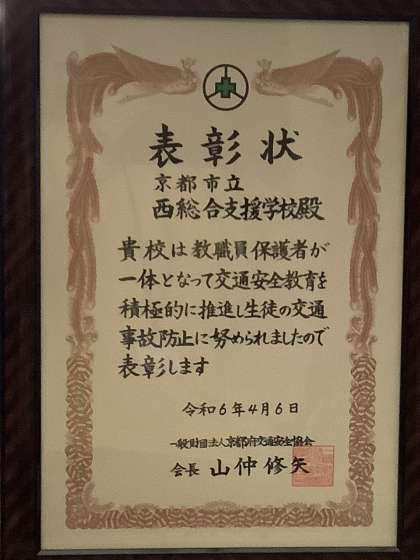 表彰状
京都市立
西総合支援学校殿
貴校は教職員保護者が
一体となって交通安全教育を
積極的に推進し生徒の交通
事故防止に努められましたので
表彰します
令和6年4月6日
一般財団法人京都府交通安全協会
会長 山仲修矢